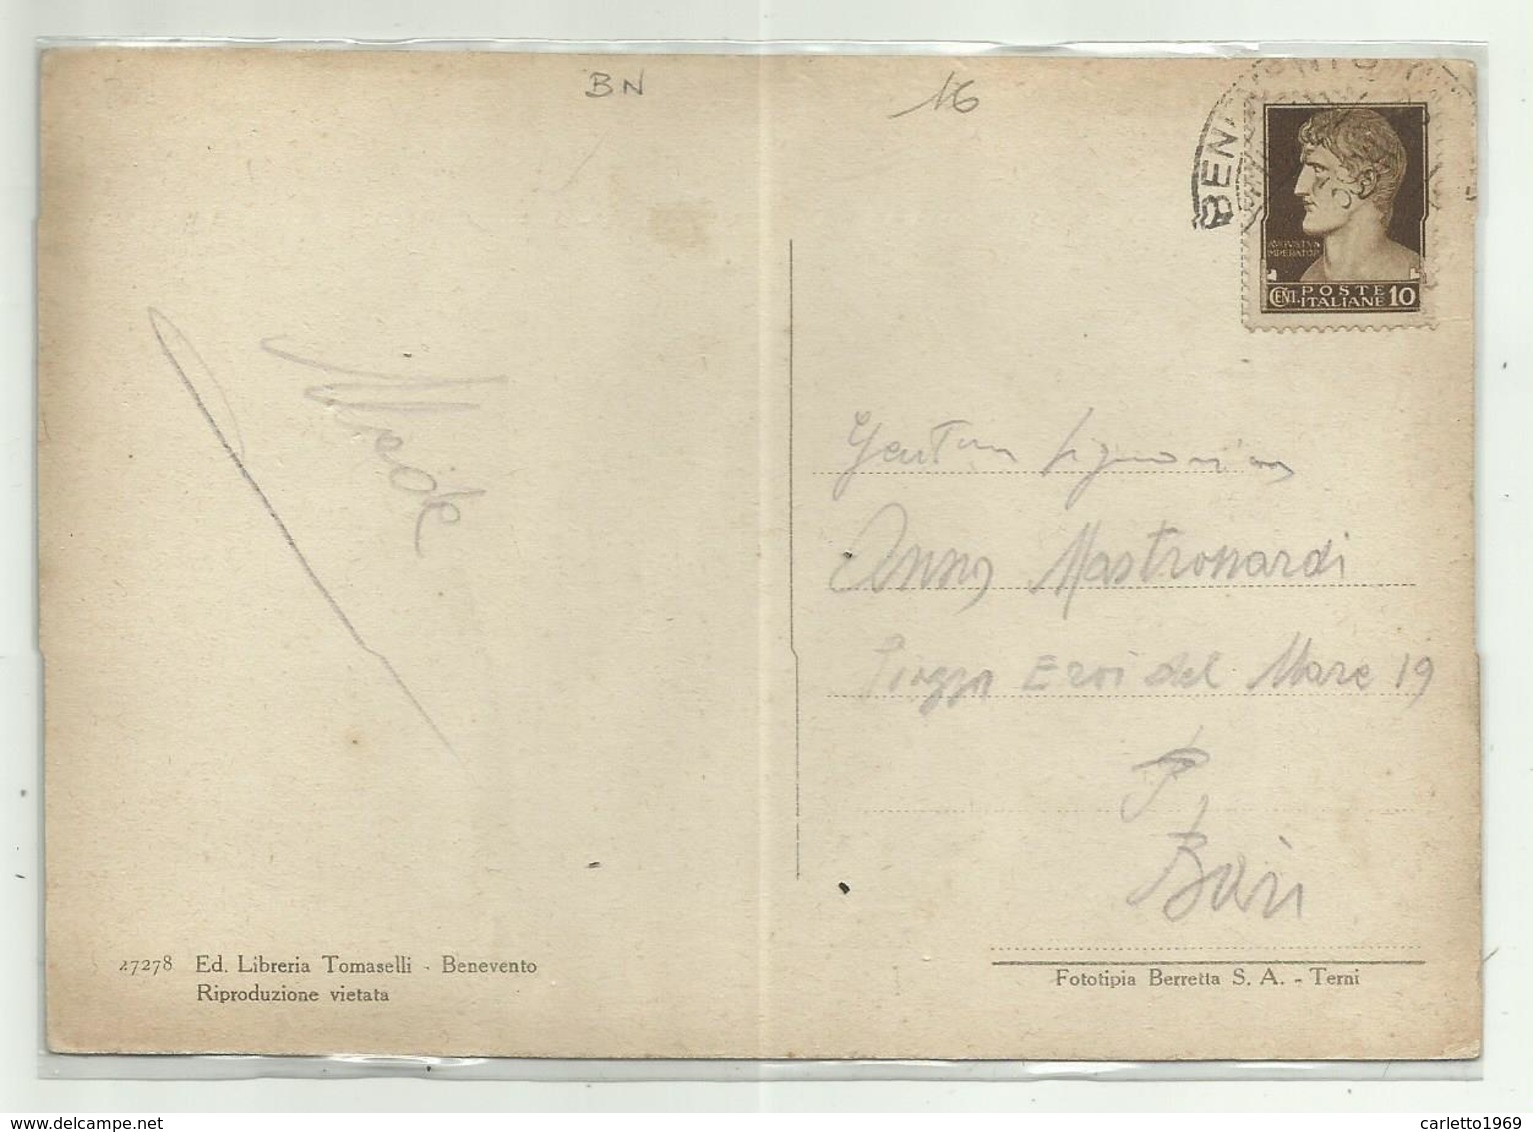 BN
16
BENEVENTO
AVGVSTVS
IMPERATOR
CENT. POSTE ITALIANE 10
Signorina
Anna Mastronardi
Piazza Eroi del Mare 19
Bari
27278 Ed. Libreria Tomaselli - Benevento
Riproduzione vietata
Fototipia Berretta S. A. - Terni
carletto1969